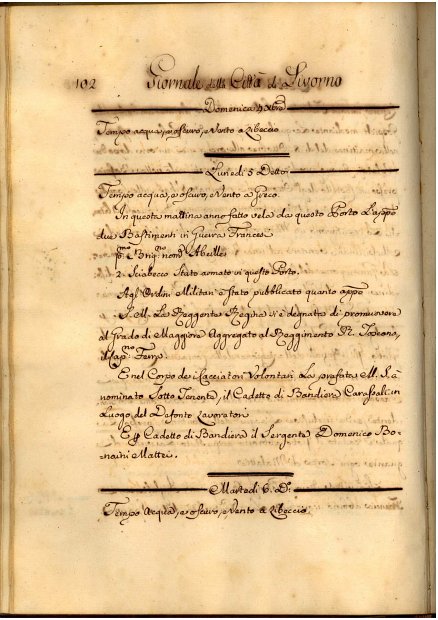 102 Giornale della Città di Livorno
Domenica 4 Xbre
Tempo acqua, e oscuro, e Vento a Libeccio
Lunedi 5 Detto
Tempo acqua, e oscuro, e Vento a Greco
In questa mattina anno fatto vela da questo Porto L'appo
due Bastimenti in Guerra Francesi
p.mo Brig.no nom.o Abeille
2. Sciabecco Stato armato in questo Porto.
Agl' Ordini Militari è stato pubblicato quanto app.o
S. M. La Reggente Regina si è degnata di promuovere
al Grado di Maggiore Aggregato al Reggimento R. Toscano,
il Cap.no Ferri.
E nel Corpo dei Cacciatori Volontari La prefata M. S. à
nominato Sotto Tenente, il Cadetto di Bandiera Carassali in
Luogo del Defonto Lavoratori
E p Cadetto di Bandiera il Sergente Domenico Bo-
naini Mattei.
Martedi 6. D.o
Tempo Acqua, e oscuro, e Vento a Libeccio